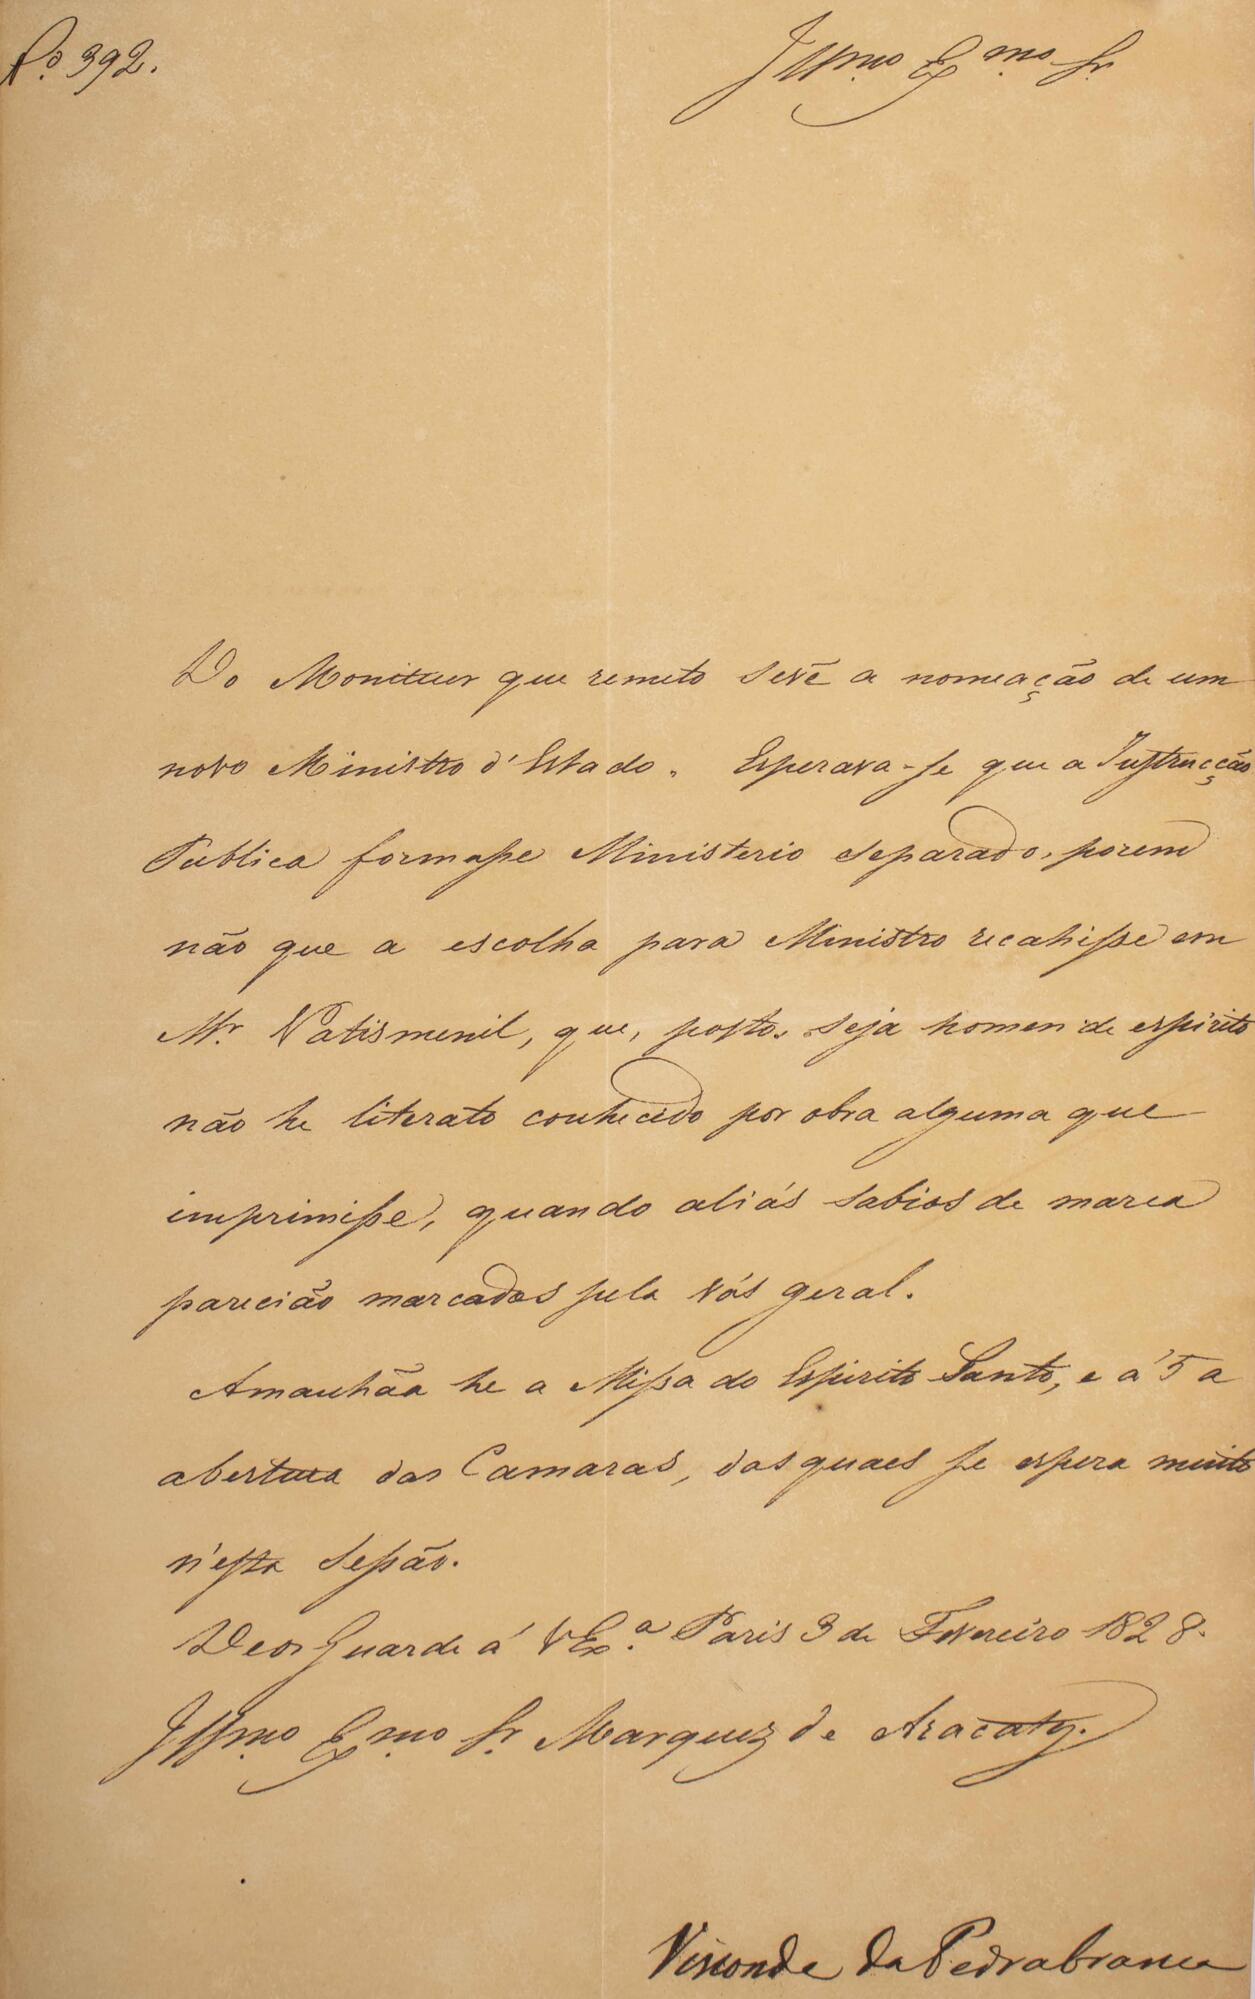 Nº 392.
Illmo Exmo Sr.
Do Moniteur que remeto sevê a nomeação de um
novo Ministro d'Estado. Esperava-se que a Instrucção
Publica formasse Ministerio separado, porem
não que a escolha para Ministro recahisse em
Mr. Vatismenil, que, posto seja homem de espirito
não he literato conhecido por obra alguma que
imprimisse, quando aliás sabios de marca
parecião marcados pela vós geral.
Amanhãa he a Missa do Espirito Santo, e á 5 a
abertura das Camaras, das quaes se espera muito
n'esta Sessão.
Deos Guarde á VExª. Paris 3 de Fevereiro 1828.
Illmo Exmo Sr. Marquez de Aracaty.
Visconde da Pedrabranca